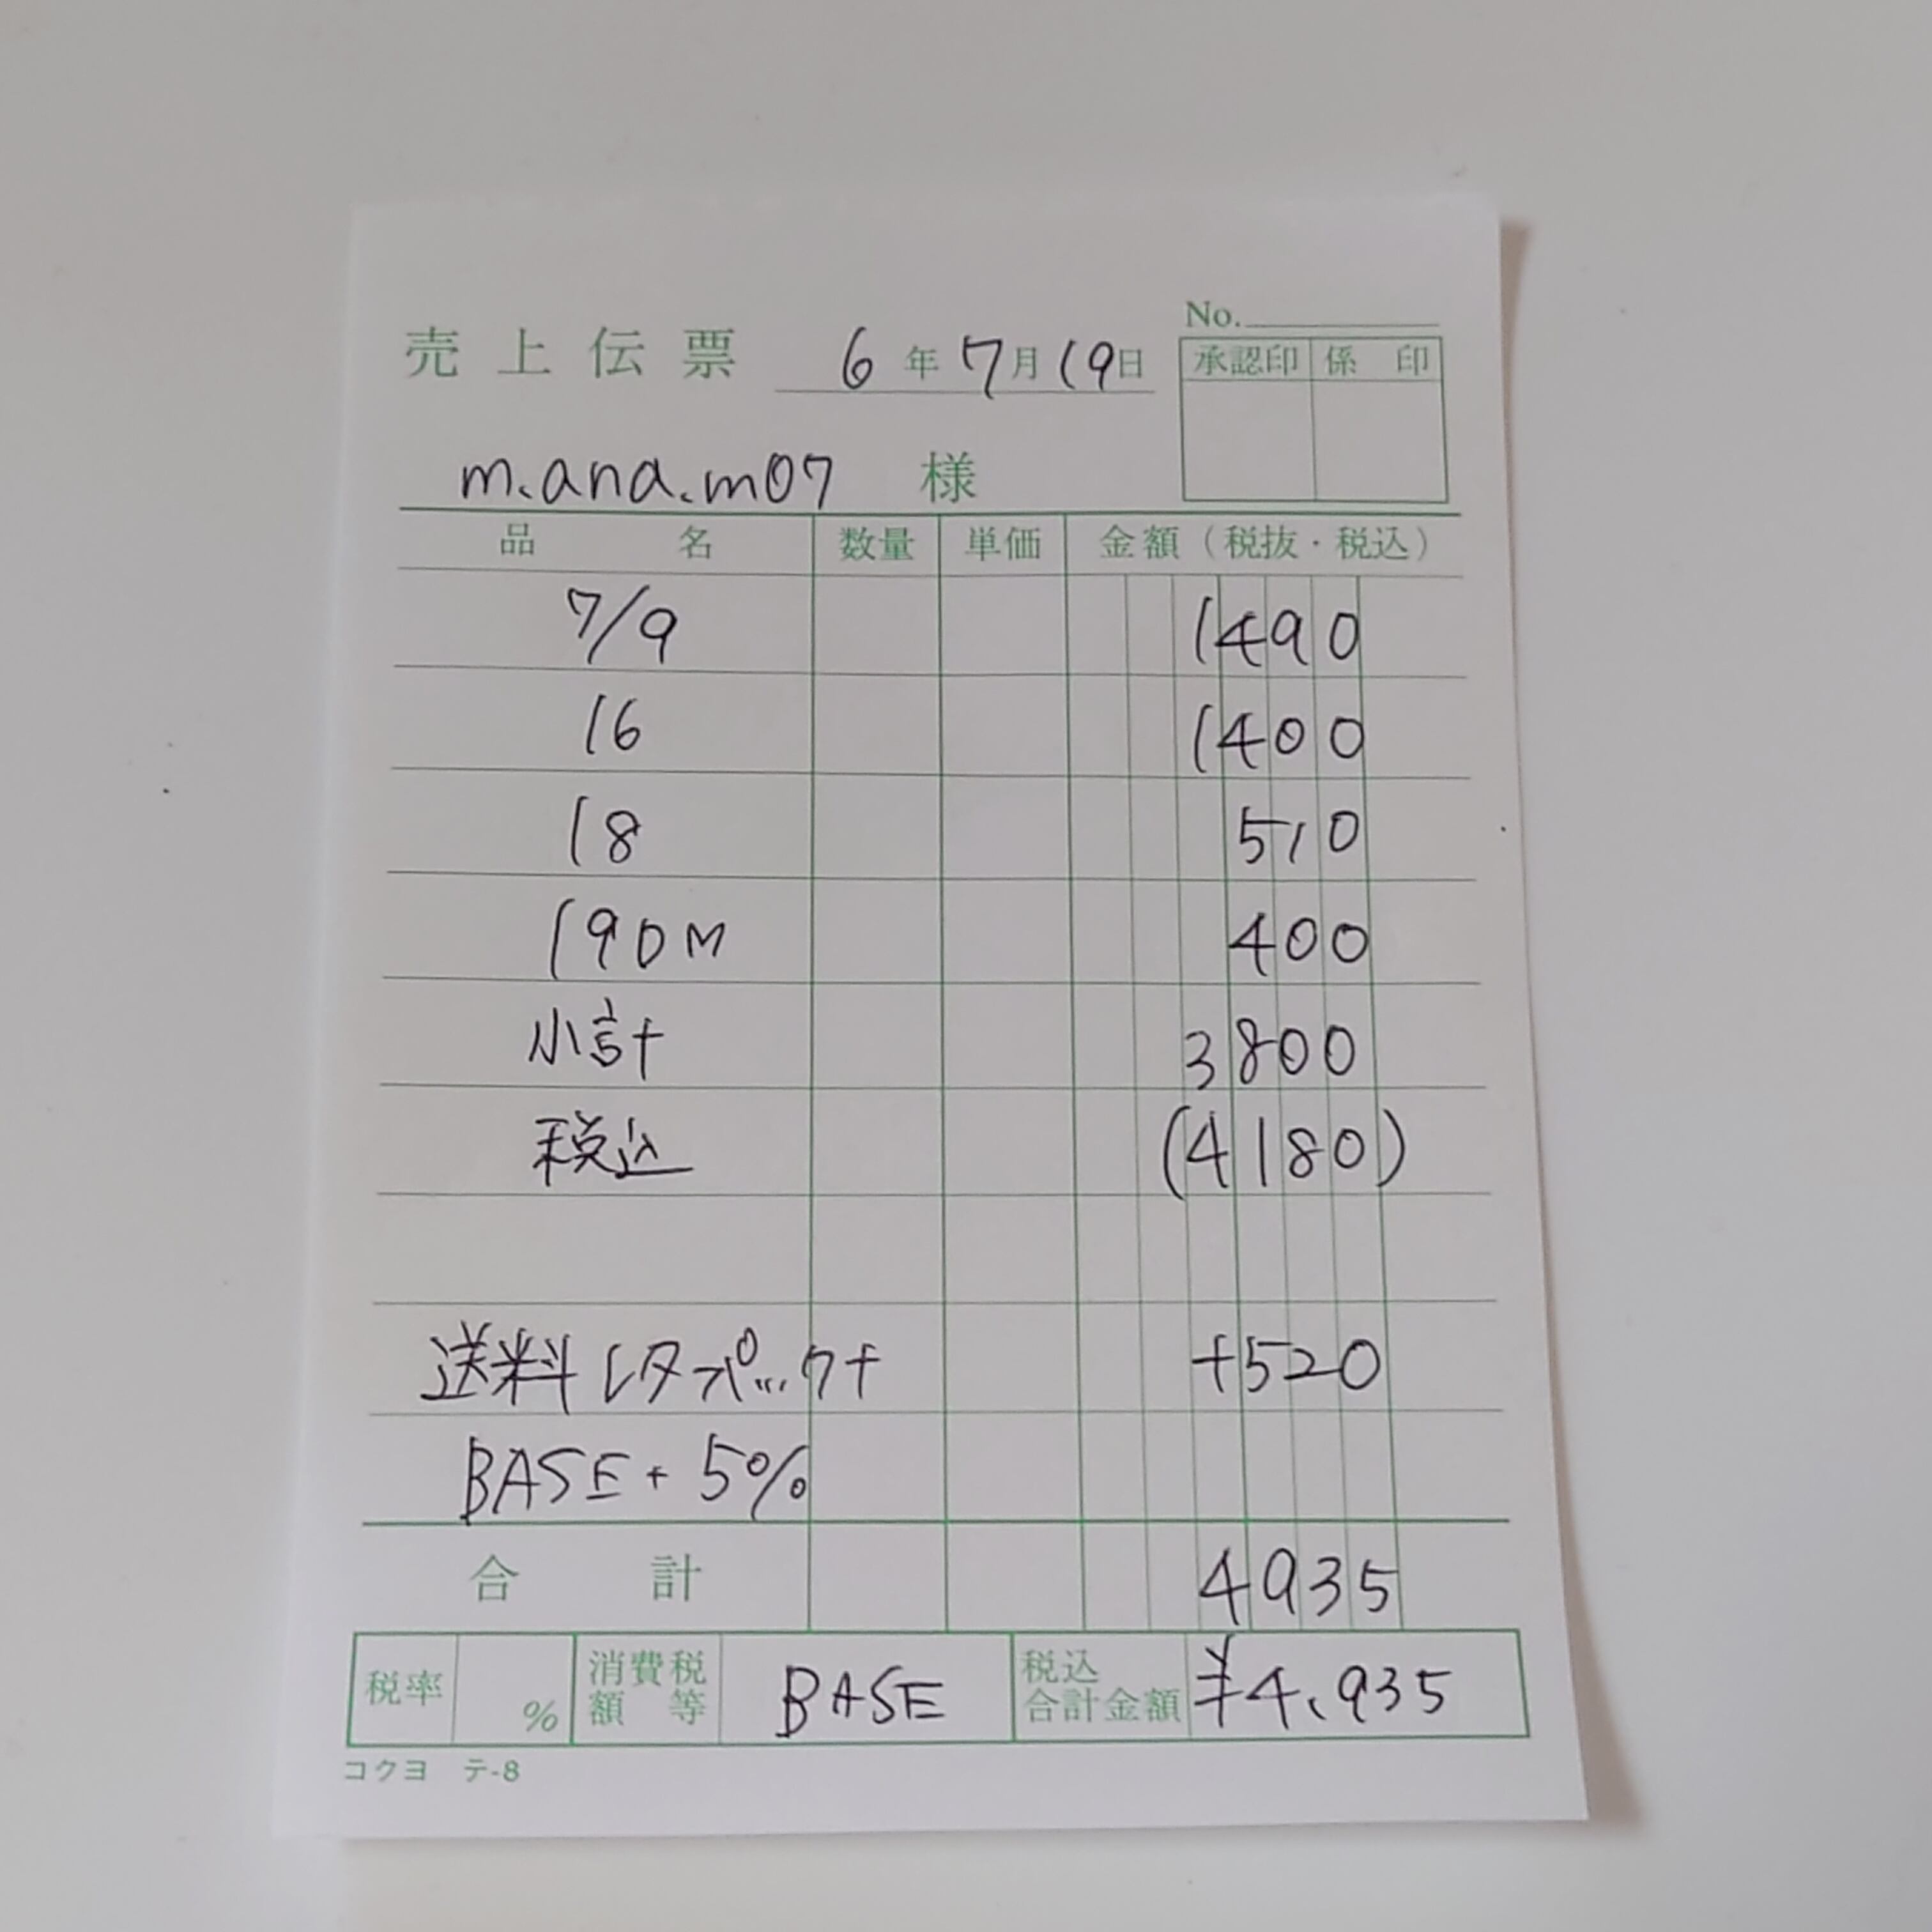 No.
売上伝票 6年7月19日
承認印 係印
m.ana.m07 様
品名 数量 単価 金額（税抜・税込）
7/9 1490
16 1400
18 510
19DM 400
小計 3800
税込 (4180)
送料レタパック+ +520
BASE+5%
合計 4935
税率 % 消費税額等 BASE 税込合計金額 ¥4,935
コクヨ テ-8